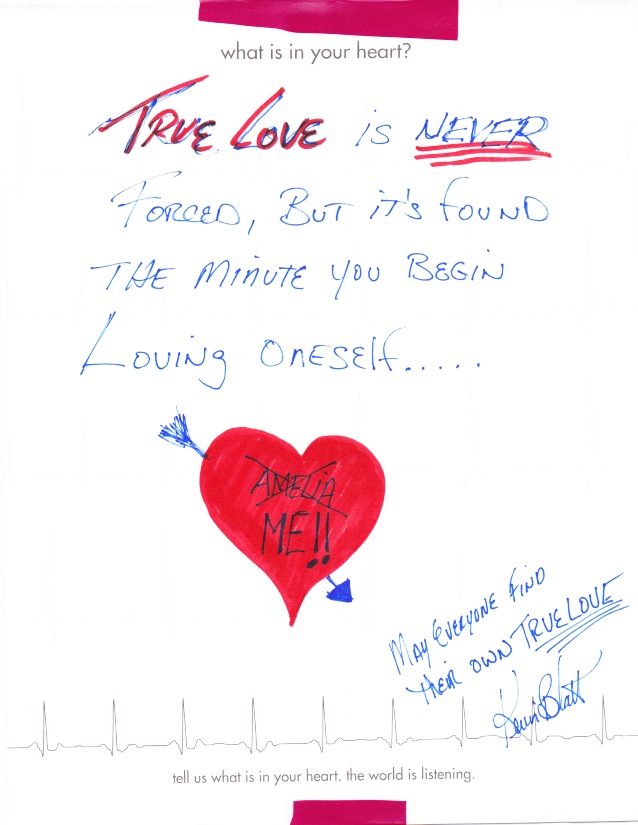 what is in your heart?
TRUE LOVE is NEVER
FORCED, BUT it's found
THE MINUTE you BEGIN
Loving ONESElf.....
AMELIA
ME!!
MAY EVERYONE FIND
their own TRUE LOVE
Kevin Blatt
tell us what is in your heart. the world is listening.